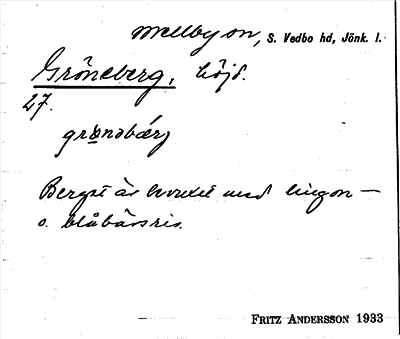 Mellby sn, S. Vedbo hd, Jönk. l.
Gröneberg, höjd.
27.
grönabärj
Berget är bevuxet med lingon-
o. blåbärsris.
FRITZ ANDERSSON 1933